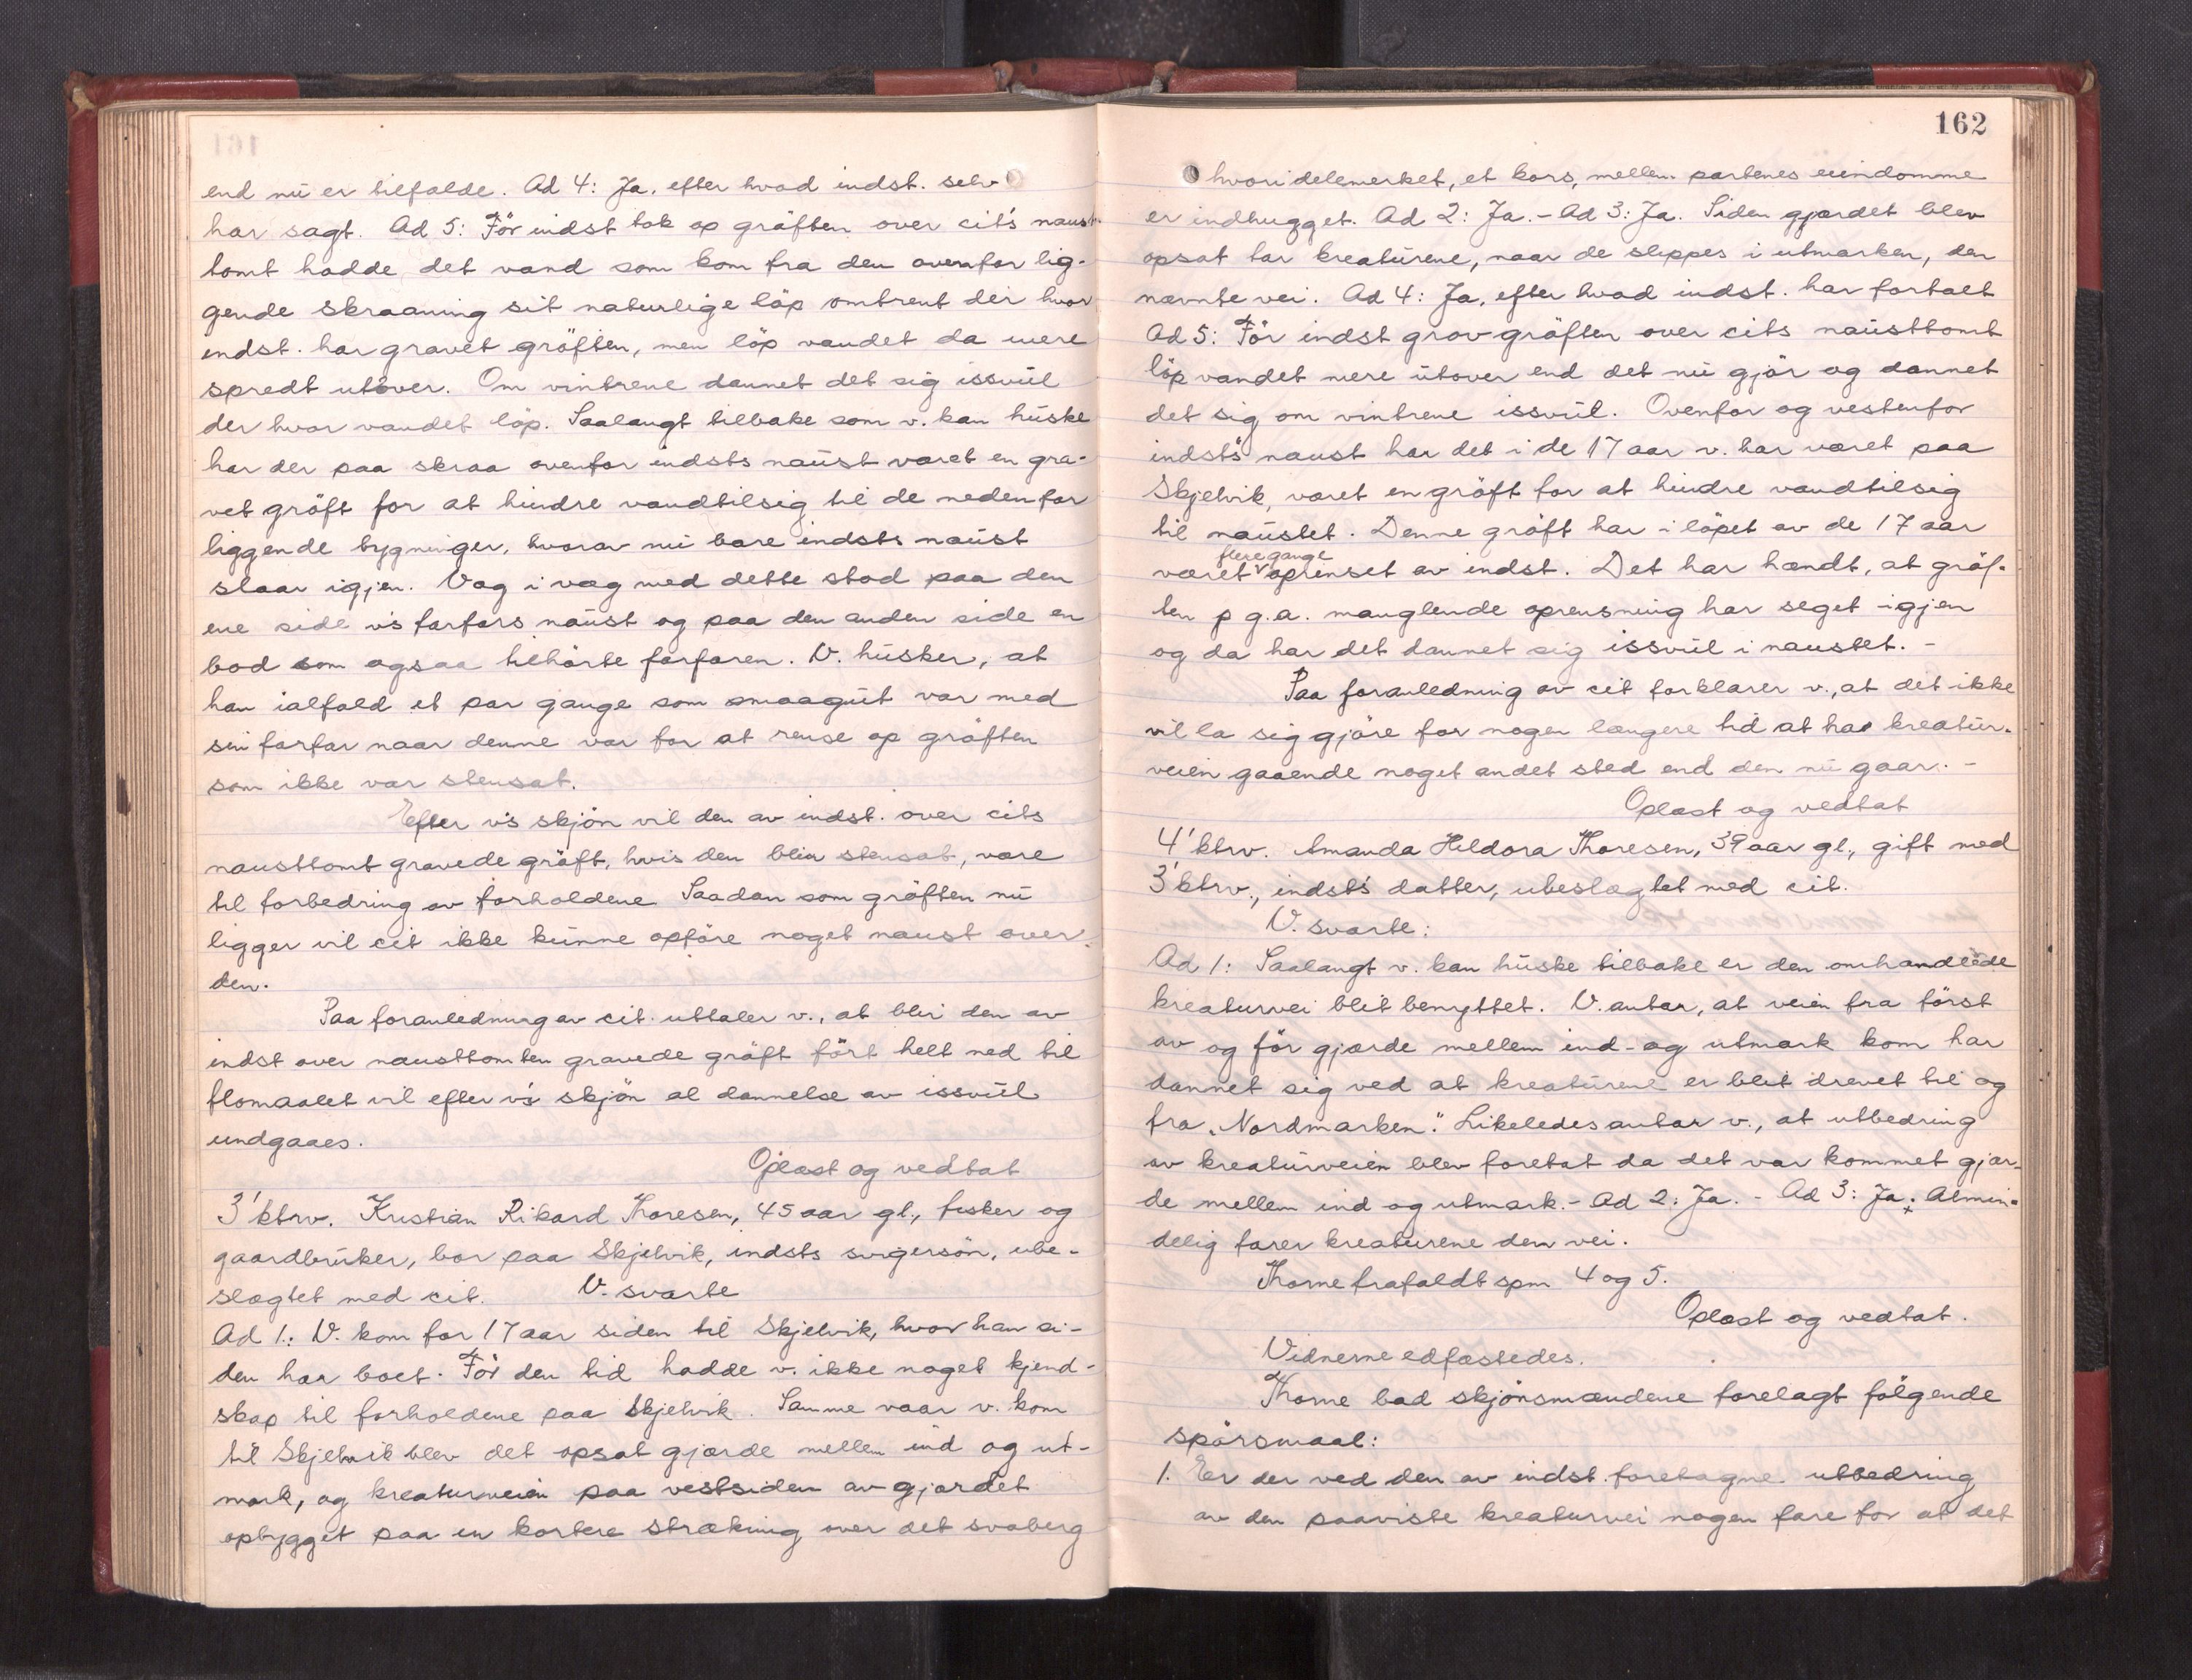 end nu er tilfælde. Ad 4: Ja, efter hvad indst. selv
har sagt. Ad 5: Før indst tok op gröften over cit's naust-
tomt hadde det vand som kom fra den ovenfor lig-
gende skraaning sit naturlige löp omtrent der hvor
indst. har gravet gröften, men löp vandet da mere
spredt utover. Om vintrene dannet det sig issvul
der hvor vandet löp. Saalangt tilbake som v. kan huske
har der paa skraa ovenfor indsts naust været en gra-
vet gröft for at hindre vandtilsig til de nedenfor
liggende bygninger, hvorav nu bare indsts naust
staar igjen. Væg i væg med dette stod paa den
ene side v's farfars naust og paa den anden side en
bod som ogsaa tilhörte farfaren. V. husker, at
han ialfald et par gange som smaagut var med
sin farfar naar denne var for at rense op gröften
som ikke var stensat.
Efter v's skjön vil den av indst. over cits
nausttomt gravede gröft, hvis den blir stensat, være
til forbedring av forholdene Saadan som gröften nu
ligger vil cit ikke kunne opföre noget naust over
den.
Paa foranledning av cit. uttaler v., at blir den av
indst over nausttomten gravede gröft fört helt ned til
flomaalet vil efter v's skjön al dannelse av issvul
undgaaes.
Oplæst og vedtat
3' ktrv. Kristian Rikard Thoresen, 45 aar gl., fisker og
gaardbruker, bor paa Skjelvik, indsts svigersön, ube-
slægtet med cit. V. svarte
Ad 1.: V. kom for 17 aar siden til Skjelvik, hvor han si-
den har boet. Før den tid hadde v. ikke noget kjend-
skap til forholdene paa Skjelvik. Samme vaar v. kom
til Skjelvik blev det opsat gjærde mellem ind og ut-
mark, og kreaturveien paa vestsiden av gjærdet
opbygget paa en kortere strækning over det svaberg
162
hvori delemerket, et kors, mellem partenes eiendomme
er indhugget. Ad 2: Ja. - Ad 3: Ja. Siden gjærdet blev
opsat tar kreaturene, naar de slippes i utmarken, den
nævnte vei. Ad 4: Ja, efter hvad indst. har fortalt
Ad 5: Før indst grov gröften over cits nausttomt
löp vandet mere utover end det nu gjör og dannet
det sig om vintrene issvul. Ovenfor og vestenfor
indsts naust har det i de 17 aar v. har været paa
Skjelvik, været en gröft for at hindre vandtilsig
til naustet. Denne gröft har i löpet av de 17 aar
flere gange
været oprenset av indst. Det har hændt, at gröf-
ten p g.a. manglende oprensning har seget igjen
og da har det dannet sig issvul i naustet. -
Paa foranledning av cit forklarer v., at det ikke
vil la sig gjöre for nogen længere tid at ha kreatur-
veien gaaende noget andet sted end den nu gaar. -
Oplæst og vedtat
4' ktrv. Amanda Hildora Thoresen, 39 aar gl., gift med
3' ktrv., indst's datter, ubeslægtet med cit.
V. svarte:
Ad 1: Saalangt v. kan huske tilbake er den omhandlede
kreaturvei blit benyttet. V. antar, at veien fra först
av og för gjærde mellem ind- og utmark kom har
dannet sig ved at kreaturene er blit drevet til og
fra „Nordmarken". Likeledes antar v., at utbedring
av kreaturveien blev foretat da det var kommet gjær-
de mellem ind og utmark. - Ad 2: Ja. - Ad 3: Ja. Almin-
delig farer kreaturene den vei.
Thorne frafaldt spm 4 og 5.
Oplæst og vedtat.
Vidnerne edfæstedes.
Thorne bad skjönsmændene forelagt fölgende
spörsmaal:
1. Er der ved den av indst. foretagne utbedring
av den paaviste kreaturvei nogen fare for at det